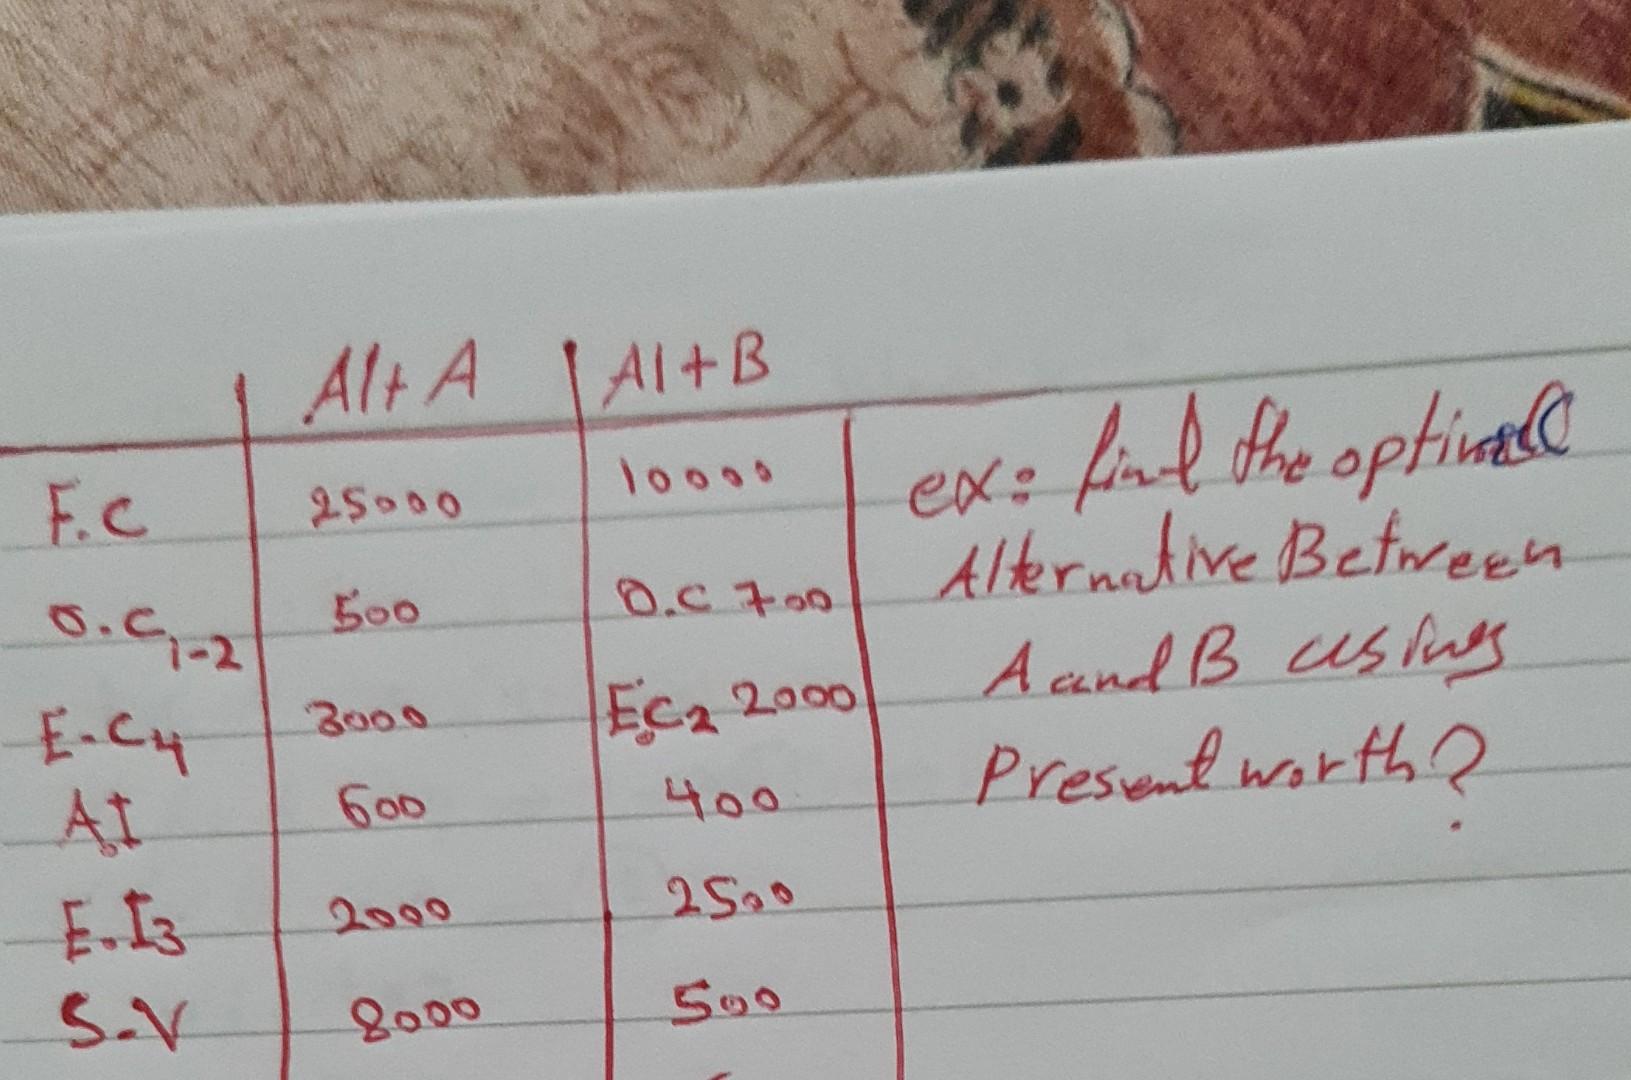 Alt A Alt B
F.C 25000 10000
O.C 1-2 500 O.C 700
E.C4 3000 E.C2 2000
A.I 600 400
E.I3 2000 2500
S.V 8000 500
ex: find the optimal
Alternative Between
A and B using
Present worth?